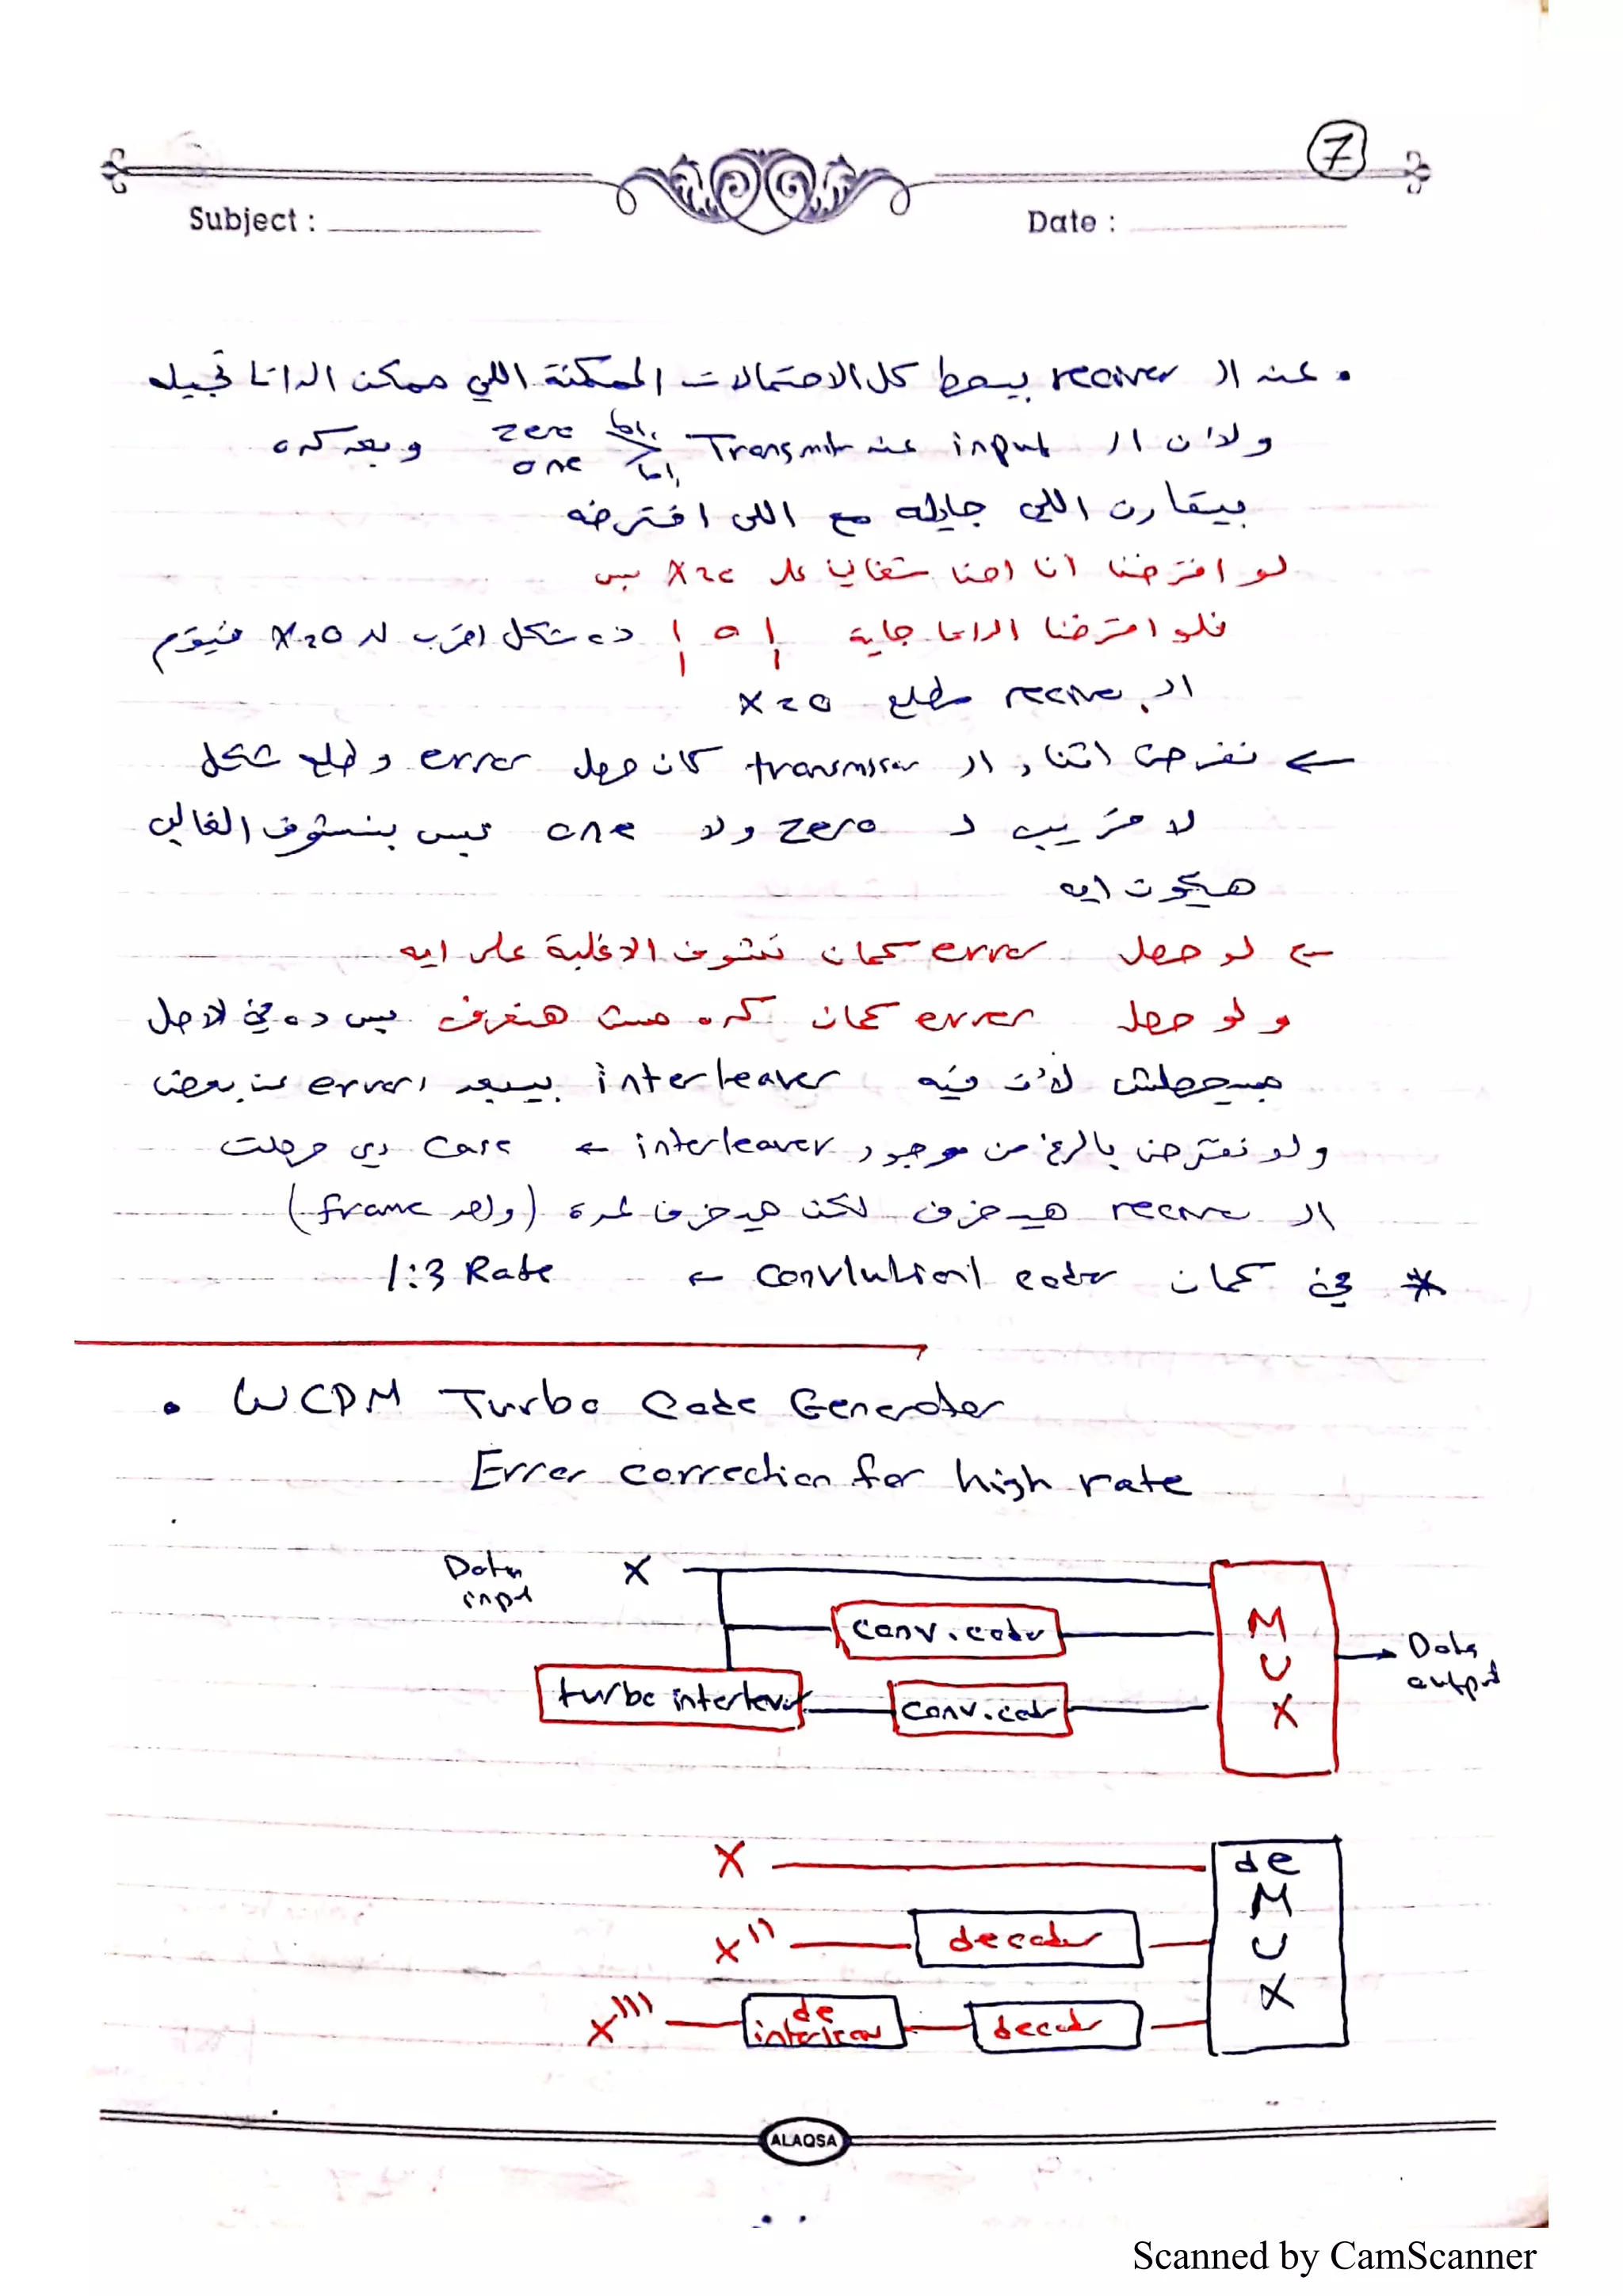 7
Subject :
Date :
• عند الـ reciver بيحط كل الاحتمالات الممكنة اللي ممكن الداتا تجيله
ولان الـ input عند Transmitr اما zero اما one وبعد كده
بيقارن اللي جايله مع اللي افترضه
لو افترضنا ان احنا شغالين على بس
فلو افترضنا الداتا جاية 1 0 1 ده شكل اقرب لـ X=0 فيقوم
الـ مطلع X=0
← نفرض اثناء الـ كان حصل error وطلع شكل
لا قريب لـ zero ولا one فبس بنشوف الغالب
هيكون ايه
← لو حصل error كمان نشوف الاغلبية على ايه
ولو حصل error كمان كده مش هنعرف بس ده في لاصل
مبيحصلش لأن فيه interleaver بيبعد error عن بعض
ولو نفترض بالرغم من موجود interleaver ← case دي حصلت
الـ هيخرف لكن هيخرف لمدة (واحد frame)
* في كمان Convlutionl coder ← 1:3 Rate
• WCDM Turbo Code Generator
Error correction for high rate
Data input X
conv. coder
turbo interlever
conv. coder
MUX
Data output
X
de MUX
X''
decoder
X'''
de interleav
decoder
ALAQSA
Scanned by CamScanner